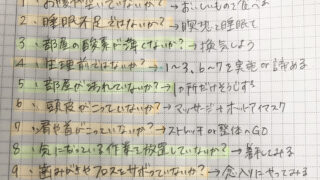 1、お腹が空いていないか？→おいしいものを食べる
2、睡眠不足ではないか？→瞑想と睡眠を
3、部屋の酸素が薄くないか？→換気しよう
4、生理前ではないか？→1〜3、6〜7を実施or諦める
5、部屋が汚れていないか？→1ヶ所だけそうじする
6、頭皮がこっていないか？→マッサージ+ホットアイマスク
7、肩や首がこっていないか？→ストレッチor整体へGO
8、気になっている作業を放置していないか？→着手してみる
9、歯みがきやフロスをサボっていないか？→念入りにやってみる